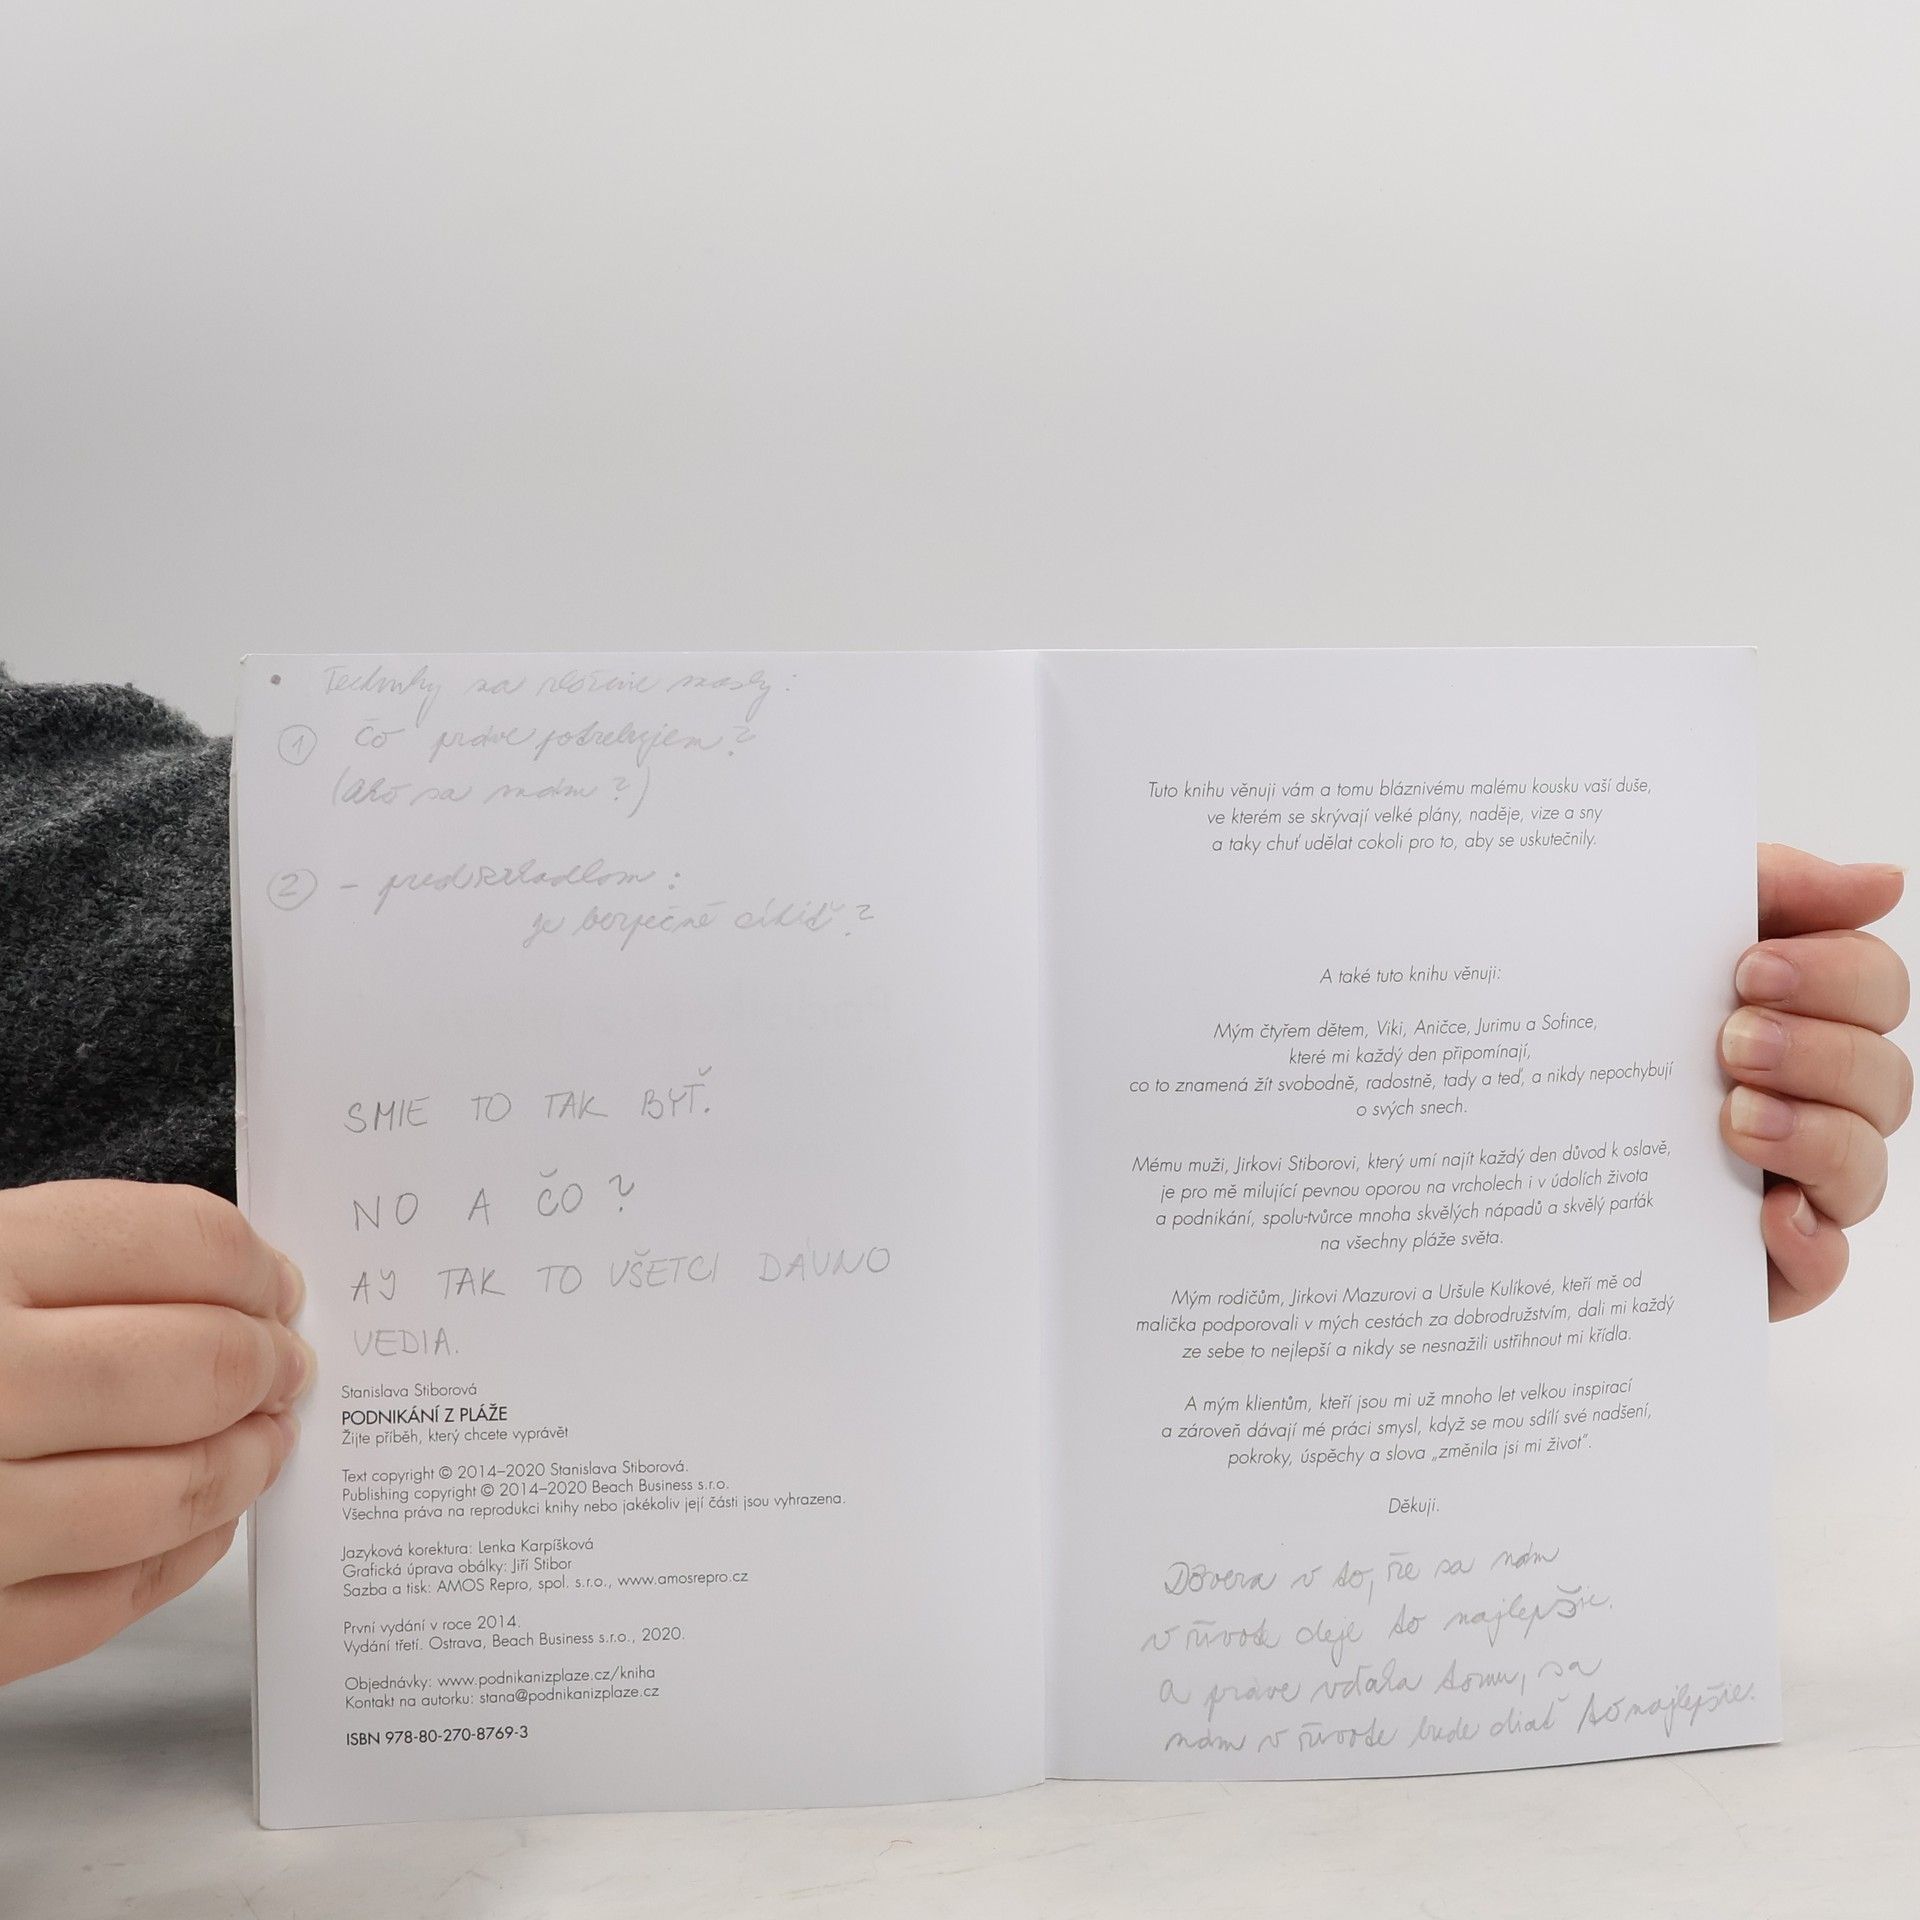 • Techniky na zloženie masky:
① Čo práve potrebujem?
(Ako sa mám?)
② – pred zrkadlom:
je bezpečné cítiť?
SMIE TO TAK BYŤ.
NO A ČO?
AJ TAK TO VŠETCI DÁVNO
VEDIA.
Stanislava Stiborová
PODNIKÁNÍ Z PLÁŽE
Žijte příběh, který chcete vyprávět
Text copyright © 2014–2020 Stanislava Stiborová.
Publishing copyright © 2014–2020 Beach Business s.r.o.
Všechna práva na reprodukci knihy nebo jakékoliv její části jsou vyhrazena.
Jazyková korektura: Lenka Karpíšková
Grafická úprava obálky: Jiří Stibor
Sazba a tisk: AMOS Repro, spol. s.r.o., www.amosrepro.cz
První vydání v roce 2014.
Vydání třetí. Ostrava, Beach Business s.r.o., 2020.
Objednávky: www.podnikanizplaze.cz/kniha
Kontakt na autorku: stana@podnikanizplaze.cz
ISBN 978-80-270-8769-3
Tuto knihu věnuji vám a tomu bláznivému malému kousku vaší duše,
ve kterém se skrývají velké plány, naděje, vize a sny
a taky chuť udělat cokoli pro to, aby se uskutečnily.
A také tuto knihu věnuji:
Mým čtyřem dětem, Viki, Aničce, Jurimu a Sofince,
které mi každý den připomínají,
co to znamená žít svobodně, radostně, tady a teď, a nikdy nepochybují
o svých snech.
Mému muži, Jirkovi Stiborovi, který umí najít každý den důvod k oslavě,
je pro mě milující pevnou oporou na vrcholech i v údolích života
a podnikání, spolu-tvůrce mnoha skvělých nápadů a skvělý parťák
na všechny pláže světa.
Mým rodičům, Jirkovi Mazurovi a Uršule Kulíkové, kteří mě od
malička podporovali v mých cestách za dobrodružstvím, dali mi každý
ze sebe to nejlepší a nikdy se nesnažili ustřihnout mi křídla.
A mým klientům, kteří jsou mi už mnoho let velkou inspirací
a zároveň dávají mé práci smysl, když se mou sdílí své nadšení,
pokroky, úspěchy a slova „změnila jsi mi život“.
Děkuji.
Dôvera v to, že sa nám
v živote deje to najlepšie.
A práve vďaka tomu, sa
nám v živote bude diať to najlepšie.